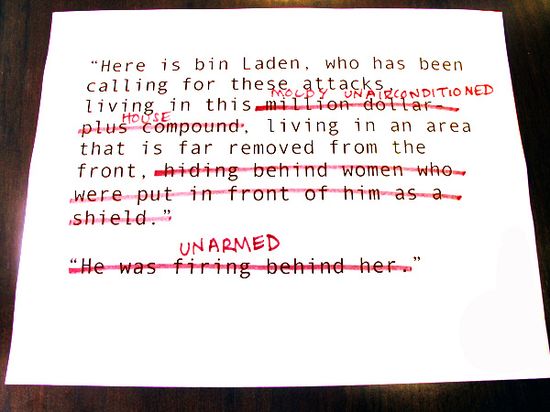 “Here is bin Laden, who has been
calling for these attacks
MOLDY UNAIRCONDITIONED
living in this million dollar-
HOUSE
plus compound, living in an area
that is far removed from the
front, hiding behind women who
were put in front of him as a
shield.”
UNARMED
“He was firing behind her.”